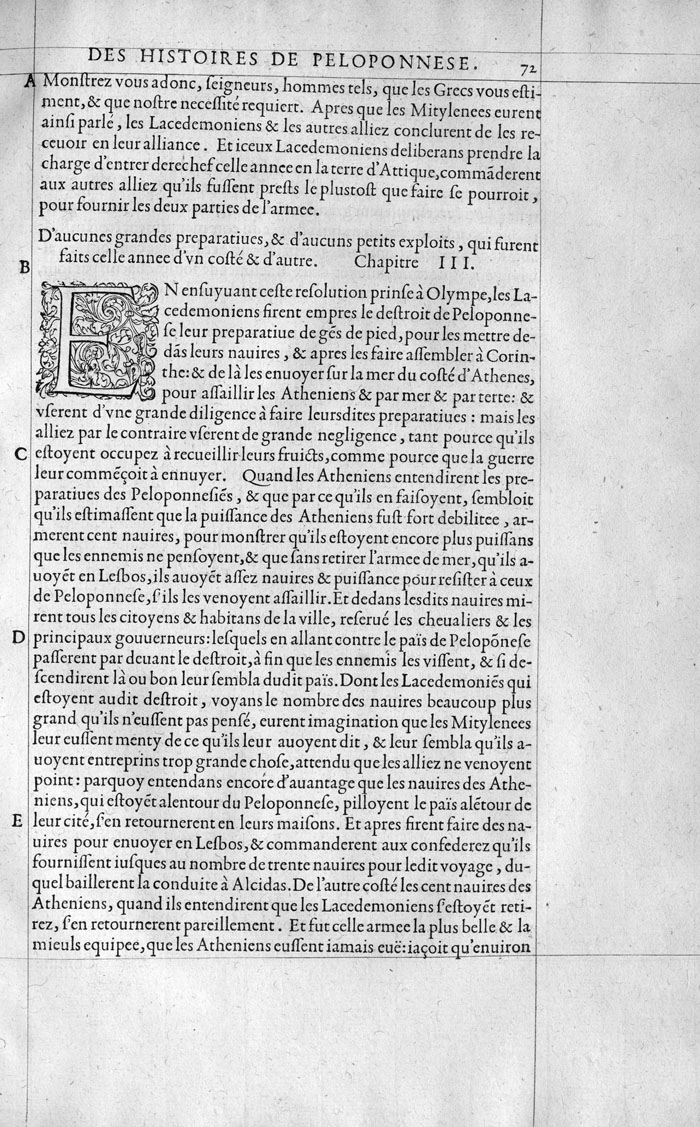 DES HISTOIRES DE PELOPONNESE. 72
A Monſtrez vous adonc, ſeigneurs, hommes tels, que les Grecs vous eſti-
ment, & que noſtre neceſſité requiert. Apres que les Mitylenees eurent
ainſi parlé, les Lacedemoniens & les autres alliez conclurent de les re-
ceuoir en leur alliance. Et iceux Lacedemoniens deliberans prendre la
charge d'entrer derechef celle annee en la terre d'Attique, commãderent
aux autres alliez qu'ils fuſſent preſts le pluſtoſt que faire ſe pourroit,
pour fournir les deux parties de l'armee.
D'aucunes grandes preparatiues, & d'aucuns petits exploits, qui furent
faits celle annee d'vn coſté & d'autre. Chapitre III.
B
EN enſuyuant ceſte reſolution prinſe à Olympe, les La-
cedemoniens firent empres le deſtroit de Peloponne-
ſe leur preparatiue de gẽs de pied, pour les mettre de-
dãs leurs nauires, & apres les faire aſſembler à Corin-
the: & de là les enuoyer ſur la mer du coſté d'Athenes,
pour aſſaillir les Atheniens & par mer & par terre: &
vſerent d'vne grande diligence à faire leurſdites preparatiues: mais les
alliez par le contraire vſerent de grande negligence, tant pource qu'ils
C eſtoyent occupez à recueillir leurs fruicts, comme pource que la guerre
leur commẽçoit à ennuyer. Quand les Atheniens entendirent les pre-
paratiues des Peloponneſiẽs, & que par ce qu'ils en faiſoyent, ſembloit
qu'ils eſtimaſſent que la puiſſance des Atheniens fuſt fort debilitee, ar-
merent cent nauires, pour monſtrer qu'ils eſtoyent encore plus puiſſans
que les ennemis ne penſoyent, & que ſans retirer l'armee de mer, qu'ils a-
uoyẽt en Leſbos, ils auoyẽt aſſez nauires & puiſſance pour reſiſter à ceux
de Peloponneſe, ſ'ils les venoyent aſſaillir. Et dedans leſdits nauires mi-
rent tous les citoyens & habitans de la ville, reſerué les cheualiers & les
D principaux gouuerneurs: leſquels en allant contre le païs de Pelopõneſe
paſſerent par deuant le deſtroit, à fin que les ennemis les viſſent, & ſi de-
ſcendirent là ou bon leur ſembla dudit païs. Dont les Lacedemoniẽs qui
eſtoyent audit deſtroit, voyans le nombre des nauires beaucoup plus
grand qu'ils n'euſſent pas penſé, eurent imagination que les Mitylenees
leur euſſent menty de ce qu'ils leur auoyent dit, & leur ſembla qu'ils a-
uoyent entreprins trop grande choſe, attendu que les alliez ne venoyent
point: parquoy entendans encore d'auantage que les nauires des Athe-
niens, qui eſtoyẽt alentour du Peloponneſe, pilloyent le païs alẽtour de
E leur cité, ſ'en retournerent en leurs maiſons. Et apres firent faire des na-
uires pour enuoyer en Leſbos, & commanderent aux confederez qu'ils
fourniſſent iuſques au nombre de trente nauires pour ledit voyage, du-
quel baillerent la conduite à Alcidas. De l'autre coſté les cent nauires des
Atheniens, quand ils entendirent que les Lacedemoniens ſ'eſtoyẽt reti-
rez, ſ'en retournerent pareillement. Et fut celle armee la plus belle & la
mieuls equipee, que les Atheniens euſſent iamais euë: iaçoit qu'enuiron